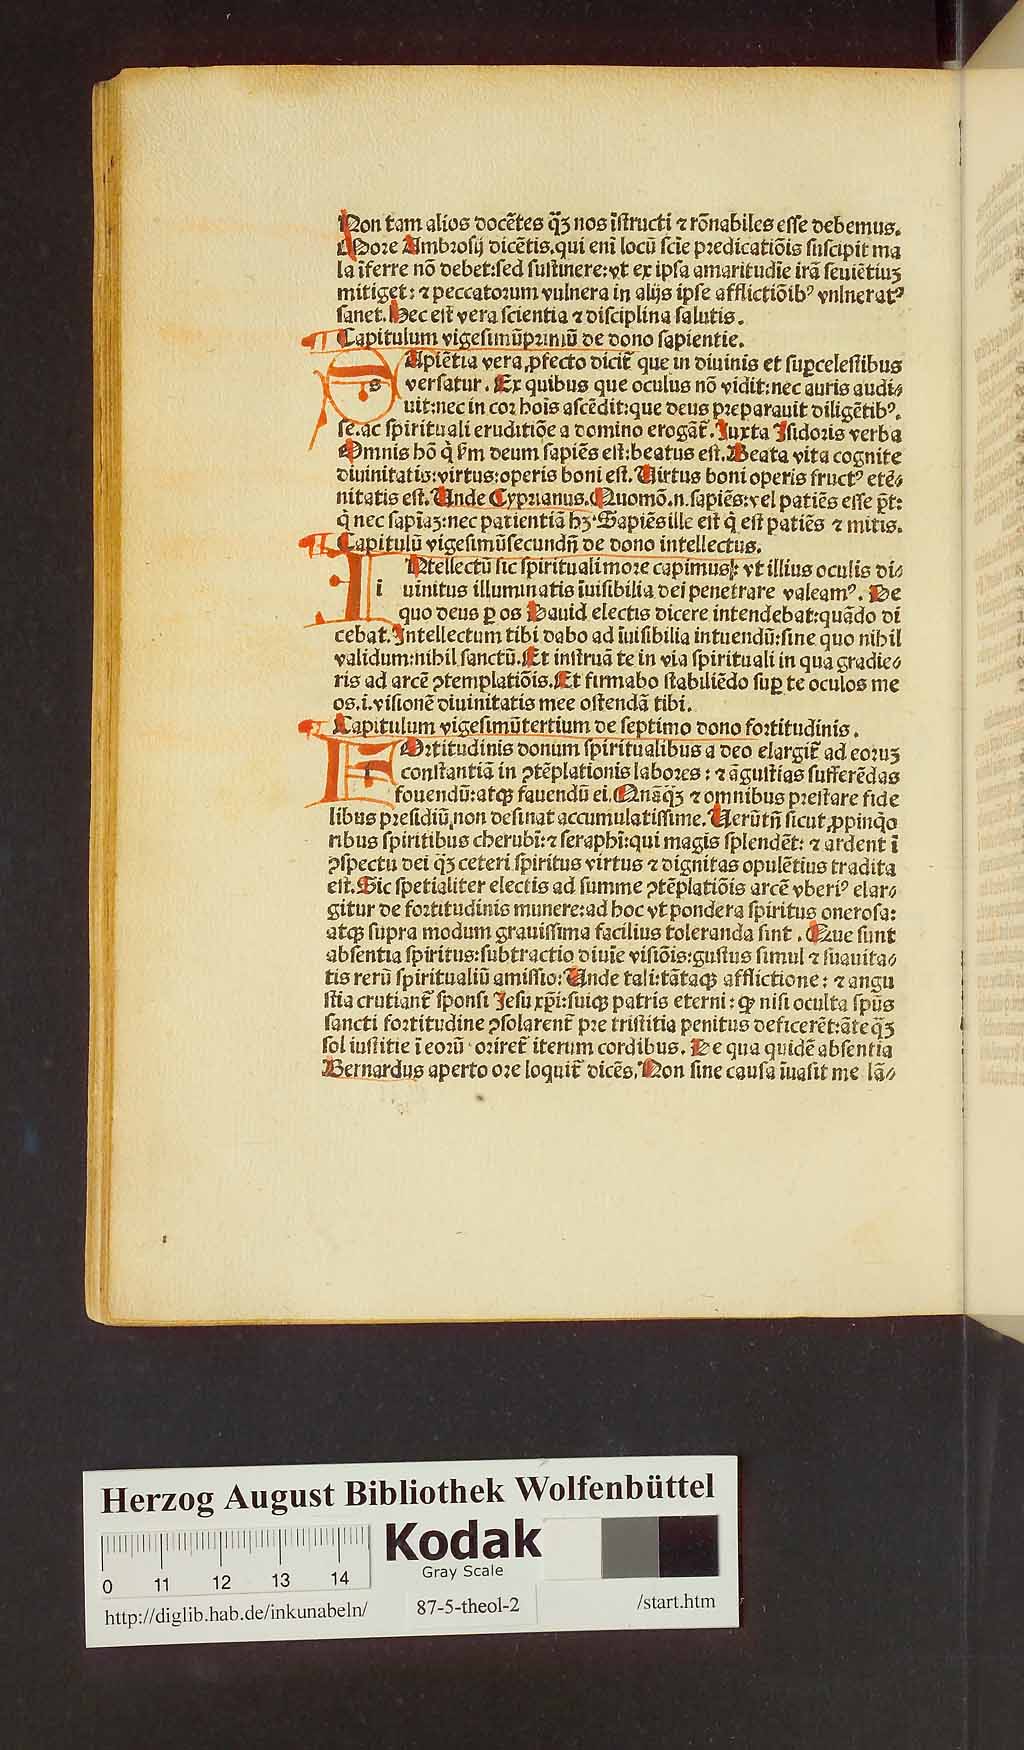 Non tam alios docẽtes q̃ꝫ nos ĩstructi ⁊ rõnabiles esse debemus.
More Ambrosij dicẽtis.qui eni locũ scie predicatiõis suscipit ma
la ĩferre nõ debet:sed sustinere:vt ex ipsa amaritudĩe irã seuiẽtiuꝫ
mitiget: ⁊ peccatorum vulnera in alijs ipse afflictiõibꝰ vnlneratꝰ
sanet. Hec est vera scientia ⁊ disciplina salutis.
Capitulum vigesimũprimũ de dono sapientie.
s Apiẽtia vera ꝓfecto dicit̃ que in diuinis et suꝑcelestibus
versatur. Ex quibus que oculus nõ vidit:nec auris audi⸗
uit:nec in cor hois ascẽdit:que deus preparauit diligẽtibꝰ.
se.ac spirituali eruditiõe a domino erogat̃. Juxta Isidoris verba
Omnis hõ q̇ ẜm deum sapiẽs est:beatus est.Beata vita cognite
diuinitatis:virtus:operis boni est. Uirtus boni operis fructꝰ etẽ⸗
nitatis est. Unde Cyprianus. Quomõ.n.sapiẽs:vel patiẽs esse p̃t:
q̇ nec sapiaꝫ:nec patientiã hꝫ.Sapiẽs ille est q̇ est patiẽs ⁊ mitis.
Capitulũ vigesimũsecundũ de dono intellectus.
i Ntellectũ sic spirituali more capimus: vt illius oculis di⸗
uinitus illuminatis ĩuisibilia dei penetrare valeamꝰ. De
quo deus ꝑ os Dauid electis dicere intendebat:quãdo di
cebat. Intellectum tibi dabo ad ĩuisibilia intuendũ:sine quo nihil
validum:nihil sanctũ. Et instruã te in via spirituali in qua gradie⸗
ris ad arcẽ ꝯtemplatiõis.Et firmabo stabiliẽdo suꝑ te oculos me
os.i.visionẽ diuinitatis mee ostendã tibi.
Capitulum vigesimũtertium de septimo dono fortitudinis.
f Ortitudinis donum spiritualibus a deo elargit̃ ad eoruꝫ
constantiã in ꝯtẽplationis labores: ⁊ ãgustias sufferẽdas
fouendũ:atqꝫ fauendũ ei. Qnãq̃ꝫ ⁊ omnibus prestare fide
libus presidiũ non desinat accumulatissime. Uerũtñ sicut ꝓpinq̇o
ribus spiritibus cherubĩ:⁊ seraphĩ:qui magis splendẽt: ⁊ ardent ĩ
ꝯspectu dei q̃ꝫ ceteri spiritus virtus ⁊ dignitas opulẽtius tradita
est. Sic spetialiter electis ad summe ꝯtẽplatiõis arcẽ vberiꝰ elar⸗
gitur de fortitudinis munere:ad hoc vt pondera spiritus onerosa:
atqꝫ supra modum grauissima facilius toleranda sint. Que sunt
absentia spiritus:subtractio diuĩe visiõis:gustus simul ⁊ suauita⸗
tis rerũ spiritualiũ amissio: Unde tali:tãtaqꝫ afflictione: ⁊ angu
stia crutiant̃ sponsi Jesu xp̃i:suiqꝫ patris eterni: qꝫ nisi oculta sp̃us
sancti fortitudine ꝯsolarent̃ pre tristitia penitus deficerẽt:ãteq̃ꝫ
sol iustitie ĩ eorũ oriret̃ iterum cordibus. De qua quidẽ absentia
Bernardus aperto ore loquit̃ dicẽs. Non sine causa ĩuasit me lã⸗
Herzog August Bibliothek Wolfenbüttel
Kodak
Gray Scale
0 11 12 13 14
http://diglib.hab.de/inkunabeln/ 87-5-theol-2 /start.htm